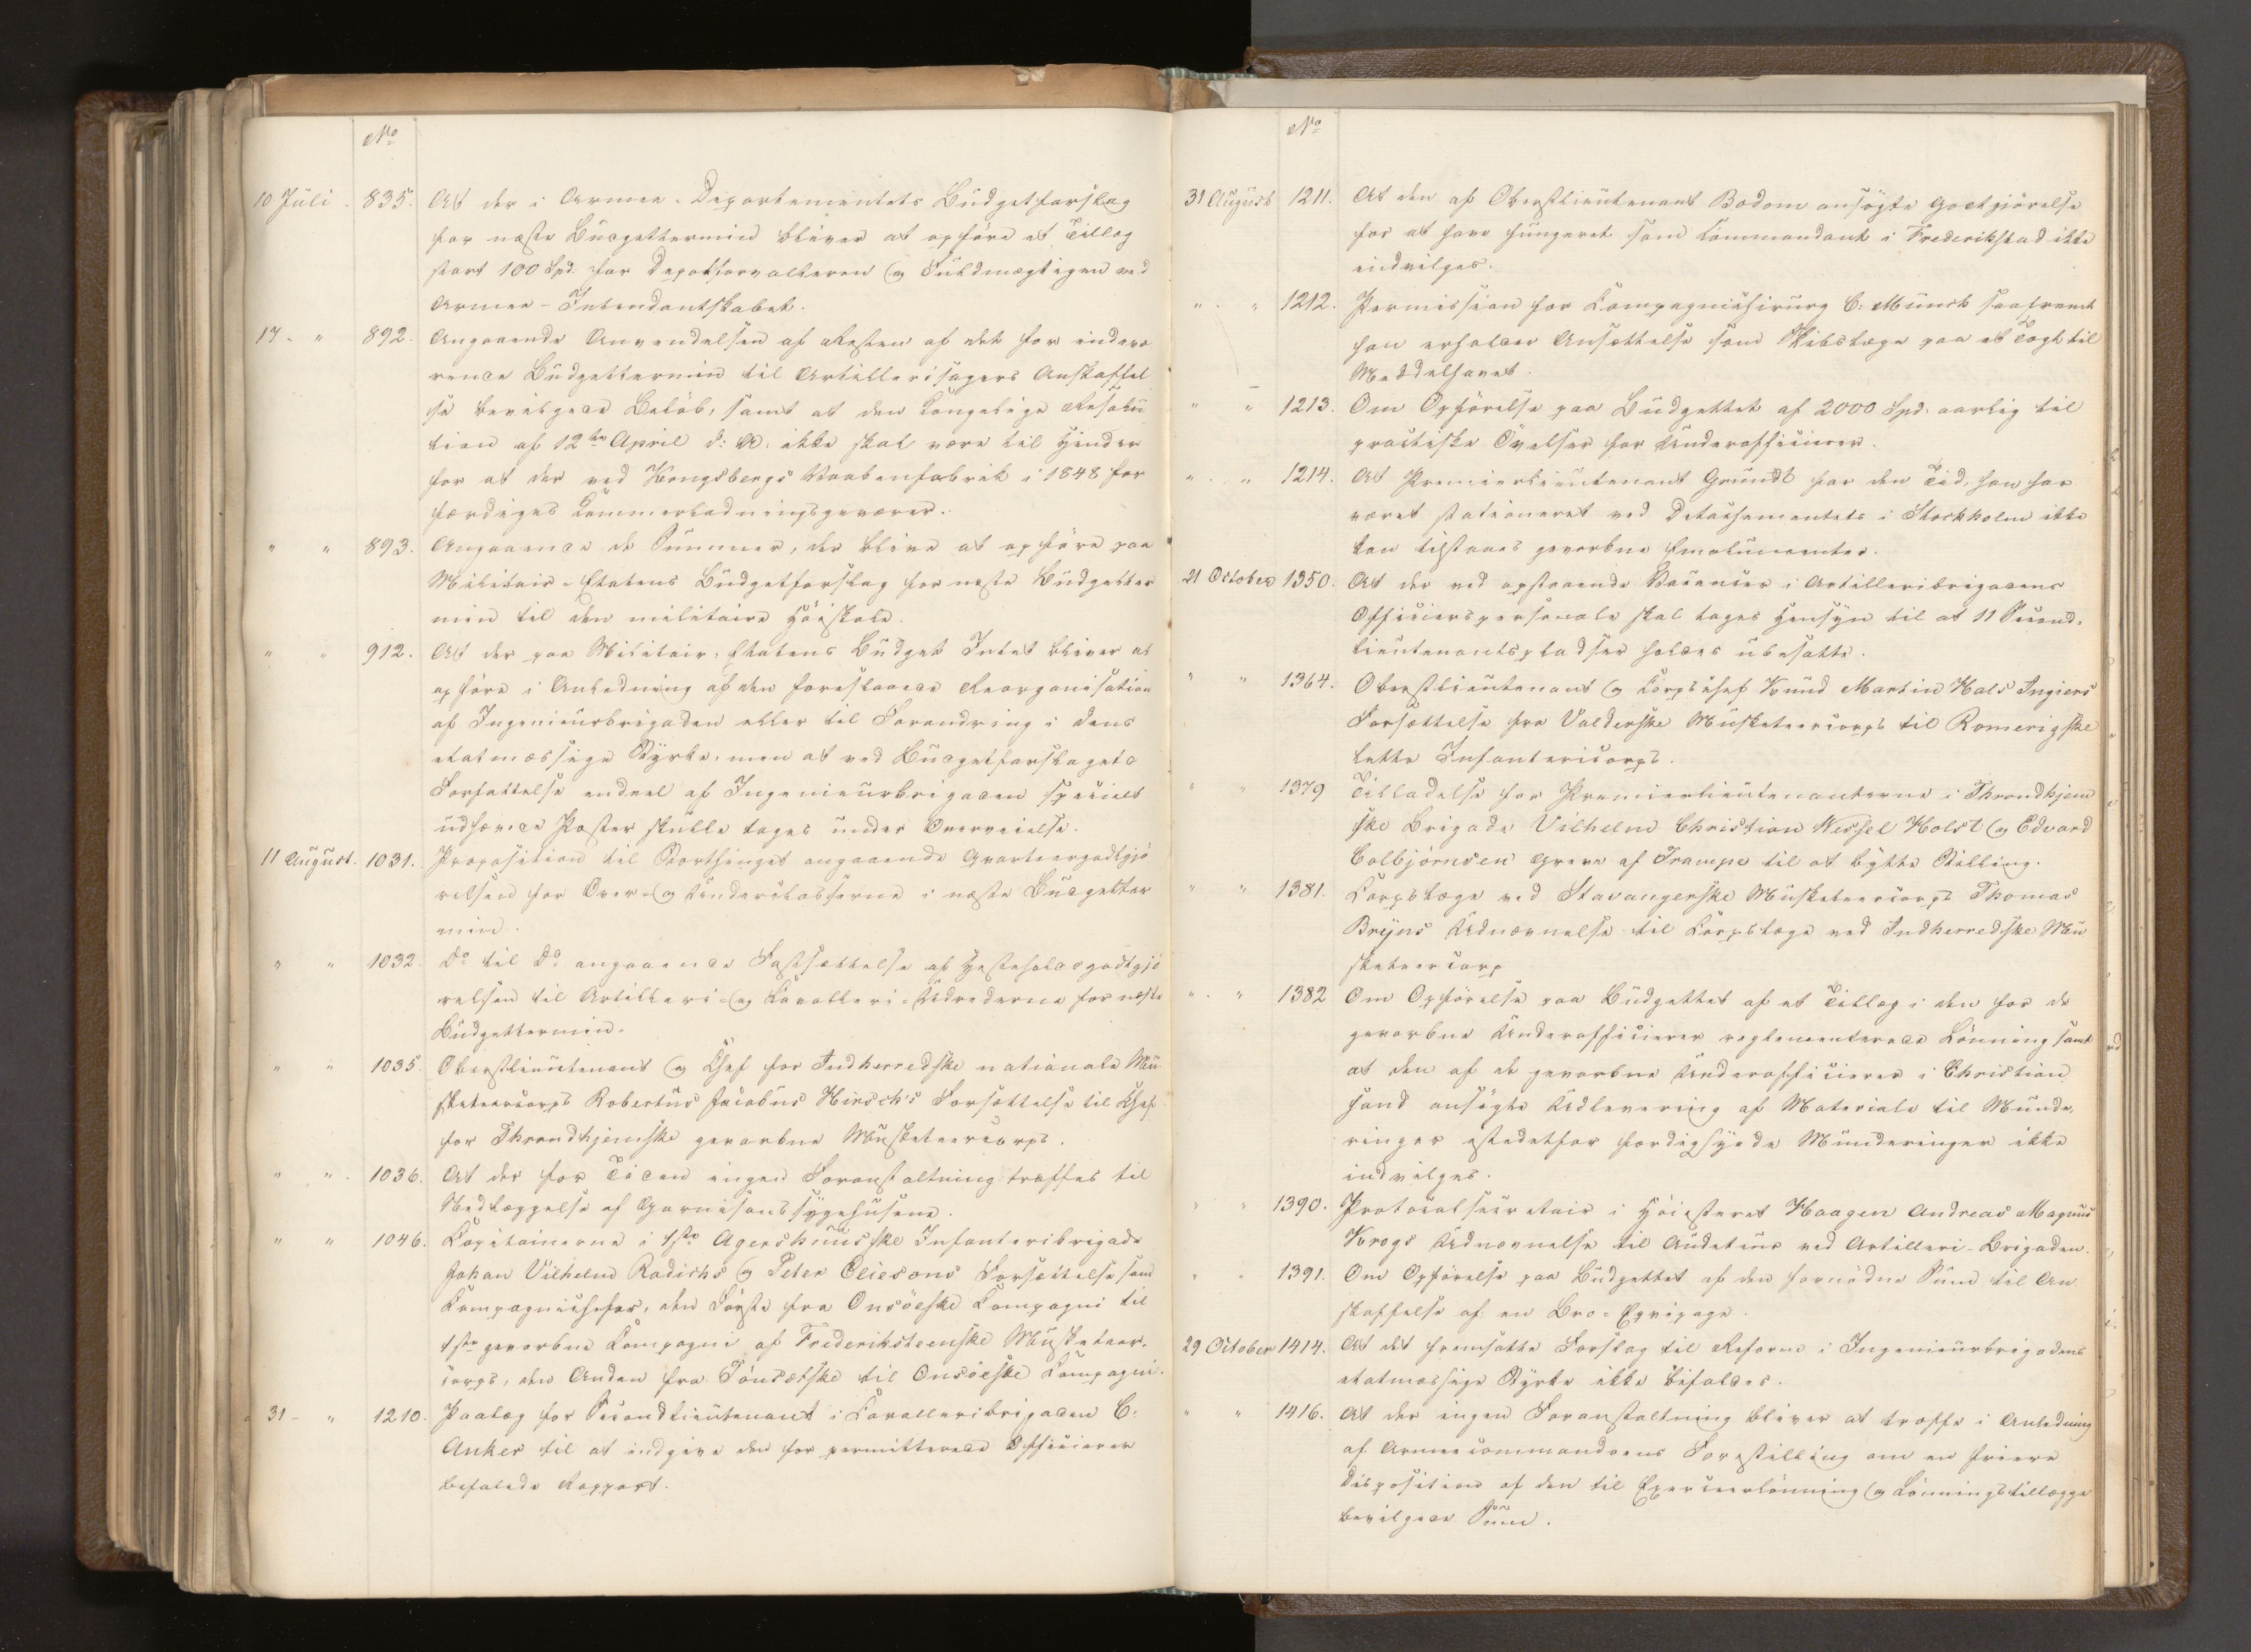 No
10 Juli. 835. At der i Armee-Departementets Budgetforslag
for næste Budgettermin bliver at opföre et Tillæg
stort 100 Spd. for Depotforvalteren og Fuldmægtigen ved
Armee-Intendantskabet.
17. " 892. Angaaende Anvendelsen af Resten af det for indevæ
rende Budgettermin til Artillerisagers Anskaffel
se bevilgede Belöb, samt at den Kongelige Resolu
tion af 12te April d: A: ikke skal være til Hinder
for at der ved Kongsbergs Vaabenfabrik i 1848 for
færdiges Kammerladningsgeværer.
" " 893. Angaaende de Summer, der blive at opföre paa
Militair-Etatens Budgetforslag for næste Budgetter
min til den militaire Höiskole.
" " 912. At der paa Militair-Etatens Budget Intet bliver at
opföre i Anledning af den foreslaaede Reorganisation
af Ingenieurbrigaden eller til Forandring i dens
etatmæssige Styrke, men at ved Budgetforslagets
Forfattelse endeel af Ingenieurbrigaden specielt
udhævede Poster skulle tages under Overveielse.
11 August. 1031. Proposition til Storthinget angaaende Qvarteergodtgjö
relsen for Over- og Underklasserne i næste Budgetter
min.
" " 1032. Do til Do angaaende Fastsættelse af Hesteholdsgodtgjö
relsen til Artilleri- og Kavalleri-Udrederne for næste
Budgettermin.
" " 1035. Oberstlieutenant og Chef for Indherredske nationale Mu
sketeercorps Robertus Jacobus Hirsch's Forsættelse til Chef
for Throndhjemske gevorbne Musketeercorps.
" " 1036. At der for Tiden ingen Foranstaltning træffes til
Nedlæggelse af Garnisonssygehusene.
" " 1046. Kapitainerne i 1ste Agershuusske Infanteribrigade
Johan Vilhelm Radichs og Peter Eliesons Forsættelse som
Kompagniechefer, den Förste fra Onsöeske Kompagni til
1ste gevorbne Kompagni af Frederiksteenske Musketeer-
corps, den Anden fra Tönsætske til Onsöeske Kompagni.
31 " 1210. Paalæg for Secondlieutenant i Cavalleribrigaden C:
Anker til at indgive den for permitterede Officierer
befalede Rapport.
No
31 August 1211. At den af Oberstlieutenant Bodom ansögte Godtgjörelse
for at have fungeret som Kommandant i Frederikstad ikke
indvilges.
" " 1212. Permission for Kompagniechirurg C: Munck saafremt
han erholder Ansættelse som Skibslæge paa et Togt til
Middelhavet.
" " 1213. Om Opförelse paa Budgettet af 2000 Spd. aarlig til
practiske Övelser for Underofficierer.
" " 1214. At Premierlieutenant Grundt for den Tid, han har
været stationeret ved Detachementets i Stockholm ikke
kan tilstaaes gevorbne Emolumenter.
21 October 1350. At der ved opstaaende Vacancer i Artilleribrigadens
Officierspersonale skal tages Hensyn til at 11 Second-
lieutenantspladser holdes ubesatte.
" " 1364. Oberstlieutenant og Corpschef Knud Martin Hals Ingiers
Forsættelse fra Valderske Musketeercorps til Romerigske
lette Infantericorps.
" " 1379 Tilladelse for Premierlieutenanterne i Throndhjem
ske Brigade Vilhelm Christian Wessel Holst og Edvard
Colbjörnsen Greve af Trampe til at bytte Stilling.
" " 1381. Corpslæge ved Stavangerske Musketeercorps Thomas
Bryns Udnævnelse til Corpslæge ved Indherredske Mu
sketeercorp
" " 1382 Om Opförelse paa Budgettet af et Tillæg i den for de
gevorbne Underofficierer reglementerede Lönning samt
at den af de gevorbne Underofficierer i Christian
sand ansögte Udlevering af Materiale til Munde-
ringer istedetfor færdigsyede Munderinger ikke
indvilges.
" " 1390. Protocolsecretair i Höiesteret Haagen Andreas Magnus
Krogs Udnævnelse til Auditeur ved Artilleri-Brigaden.
" " 1391. Om Opförelse paa Budgettet af den fornödne Sum til An
skaffelse af en Bro-Eqvipage.
29 October 1414. At det fremsatte Forslag til Reform i Ingenieurbrigadens
etatmæssige Styrke ikke bifaldes.
" " 1416. At der ingen Foranstaltning bliver at træffe i Anledning
af Armeecommandoens Forestilling om en friere
Disposition af den til Exerceerlönning og Lönningstillægge
bevilgede Sum.